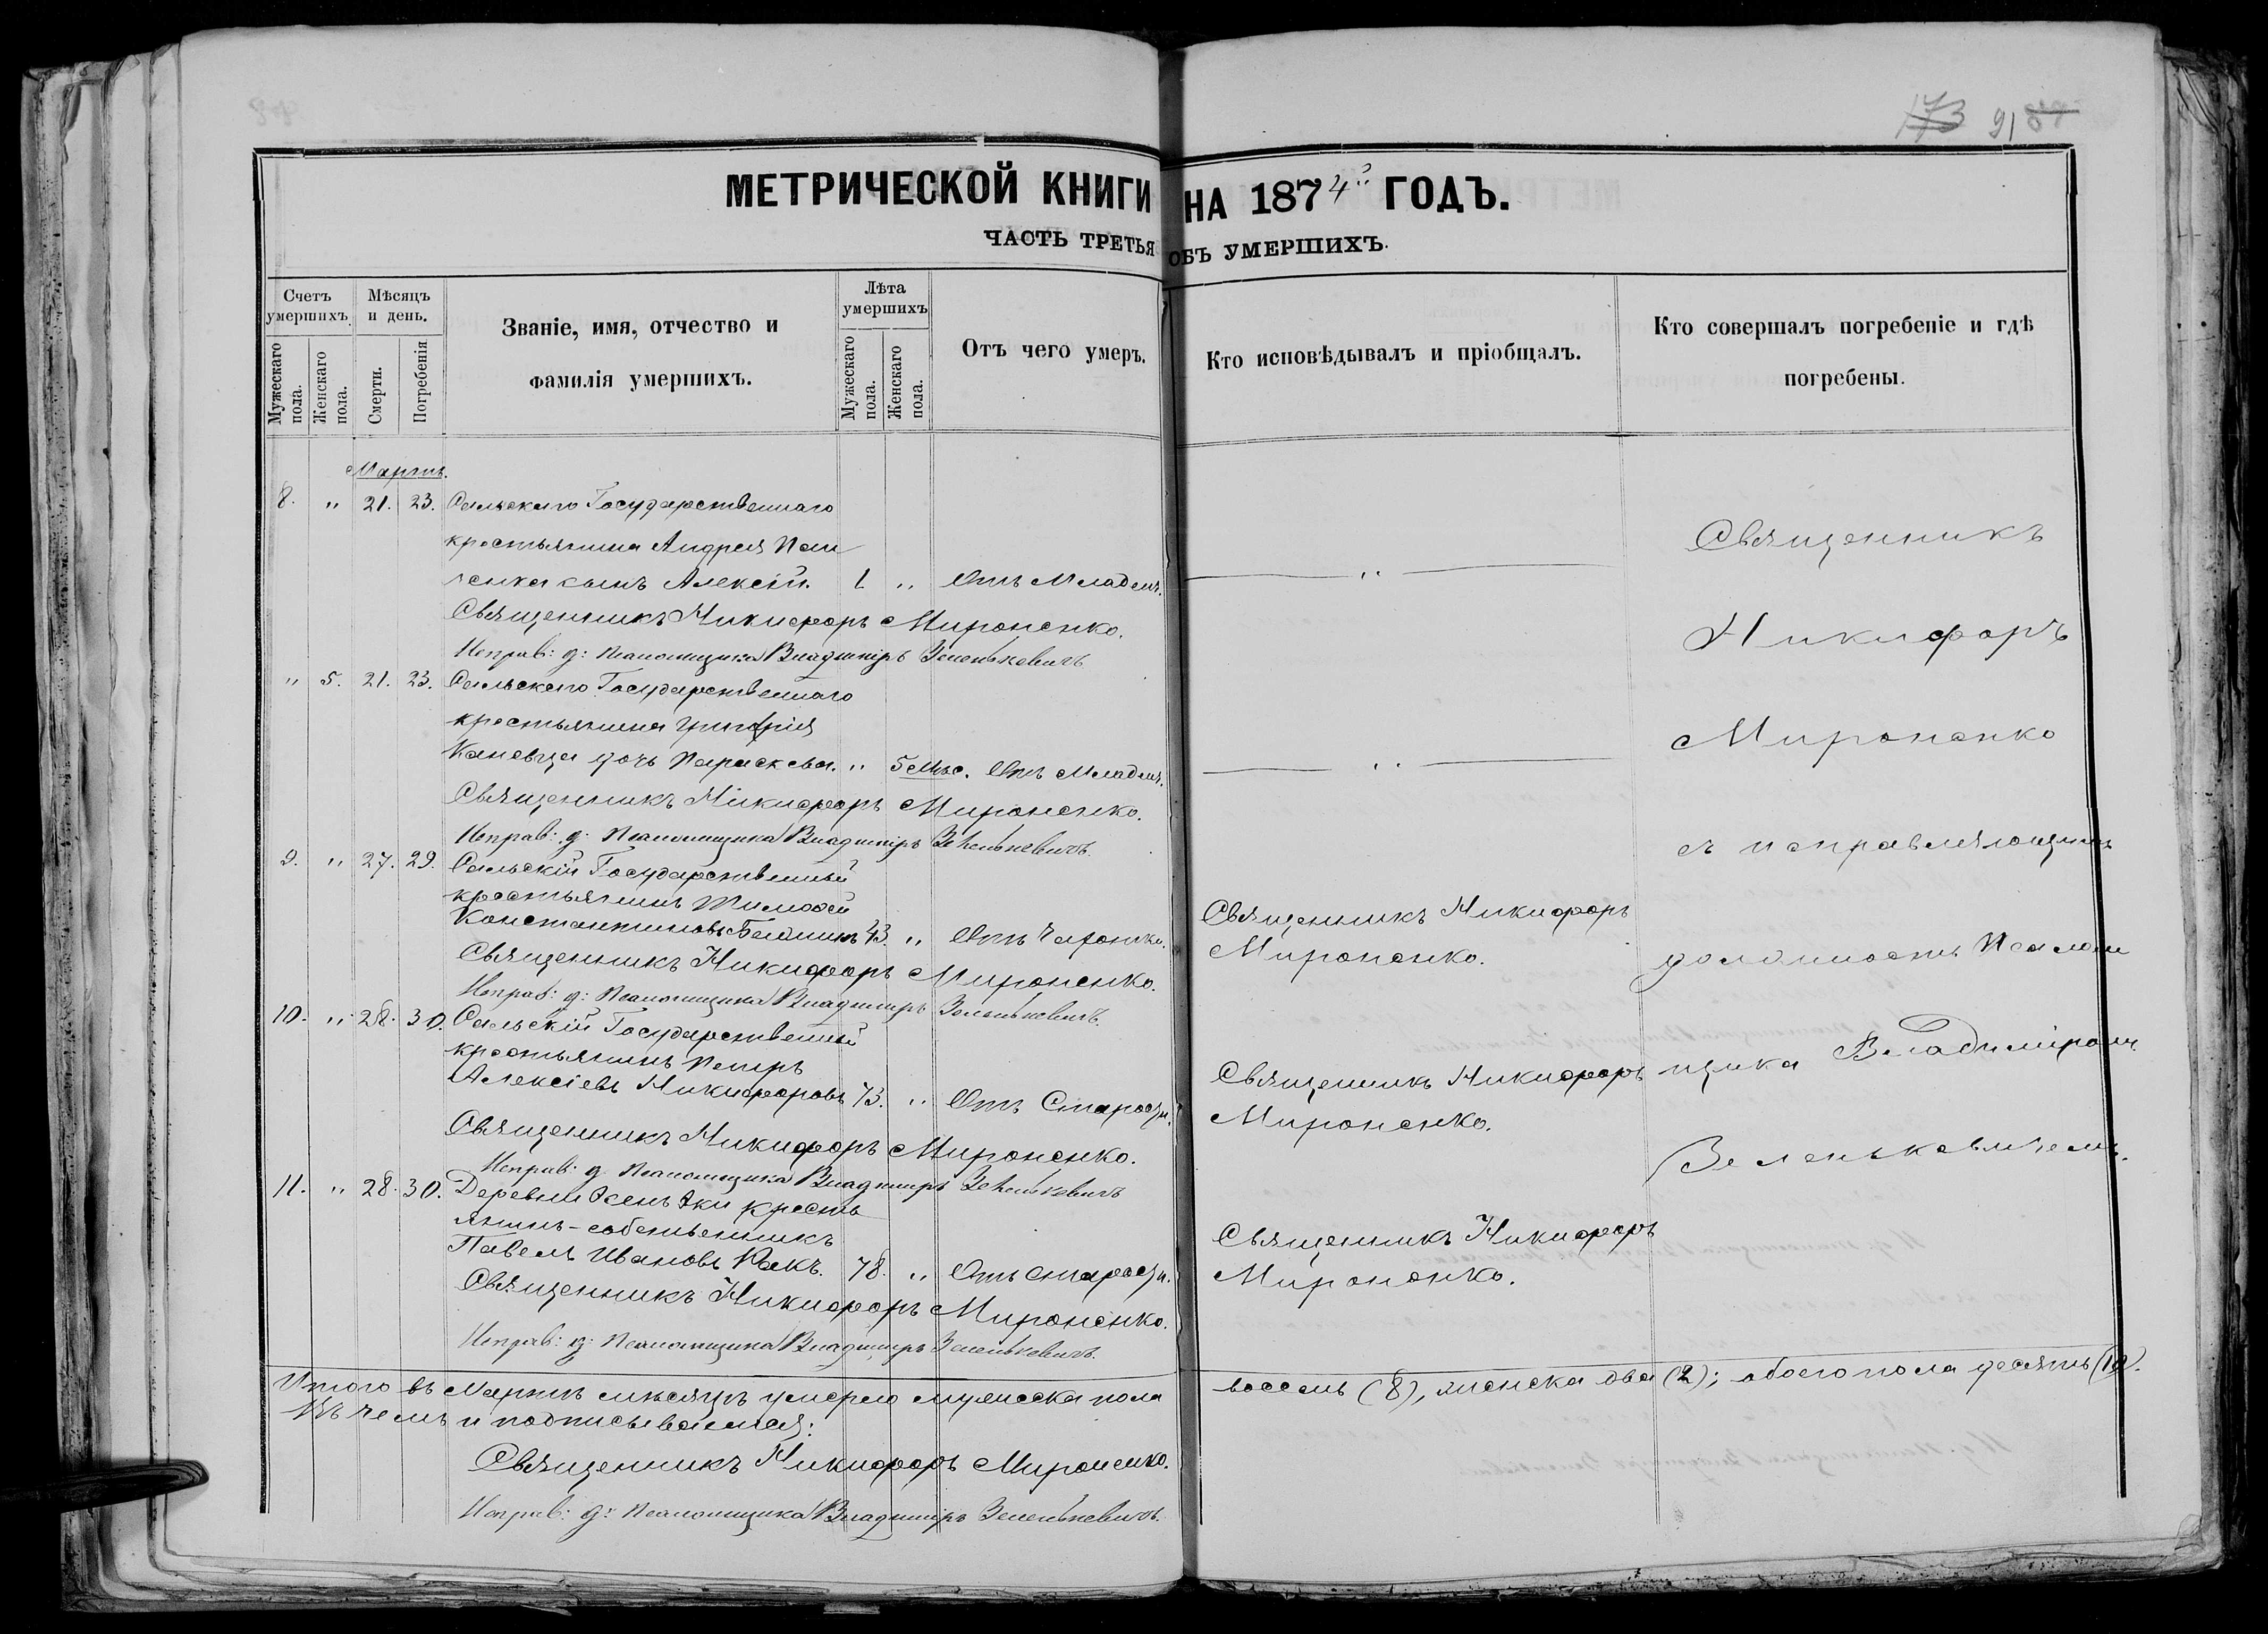 173 91 87
МЕТРИЧЕСКОЙ КНИГИ НА 1874й ГОДЪ.
ЧАСТЬ ТРЕТЬЯ ОБЪ УМЕРШИХЪ.
Счетъ умершихъ.
Мужескаго пола.
Женскаго пола.
Мѣсяцъ и день.
Смерти.
Погребенія
Званіе, имя, отчество и фамилія умершихъ.
Лѣта умершихъ
Мужескаго пола.
Женскаго пола.
Отъ чего умеръ.
Кто исповѣдывалъ и пріобщалъ.
Кто совершалъ погребеніе и гдѣ погребены.
Мартъ.
8. " 21. 23. Сальскаго Государственнаго
крестьянина Андрея
сынъ Алексій. 1 " Отъ Младенч. "
Священникъ Никифоръ Мироненко.
Исправ: д: Псаломщика Владиміръ Зеленькевичъ
" 5. 21. 23. Сальскаго Государственнаго
крестьянина Григорія
Каневца дочь Параскева. " 5 мѣс. Отъ Младенч. "
Священникъ Никифоръ Мироненко.
Исправ: д: Псаломщика Владиміръ Зеленькевичъ.
9. " 27. 29. Сальскій Государственный
крестьянинъ Тимофей
Константиновъ 43. " Отъ Чахотки. Священникъ Никифоръ
Мироненко.
Священникъ Никифоръ Мироненко.
Исправ: д: Псаломщика Владиміръ Зеленькевичъ.
10. " 28. 30. Сальскій Государственный
крестьянинъ Петръ
Алексіевъ Никифоровъ 73. " Отъ Старости. Священникъ Никифоръ
Мироненко.
Священникъ Никифоръ Мироненко.
Исправ: д: Псаломщика Владиміръ Зеленькевичъ
11. " 28. 30. Деревни кресть
янинъ-собственникъ
Павелъ Ивановъ Ракъ. 78. " Отъ старости. Священникъ Никифоръ
Мироненко.
Священникъ Никифоръ Мироненко.
Исправ: д: Псаломщика Владиміръ Зеленькевичъ.
Священникъ
Никифоръ
Мироненко
съ исправляющимъ
должность Псалом
щика Владиміромъ
Зеленькевичемъ.
Итого въ Мартѣ мѣсяцѣ умерло мужеска пола восемь (8), женска два (2); обоего пола десять (10).
Въ чемъ и подписываемся:
Священникъ Никифоръ Мироненко.
Исправ: д: Псаломщика Владиміръ Зеленькевичъ.